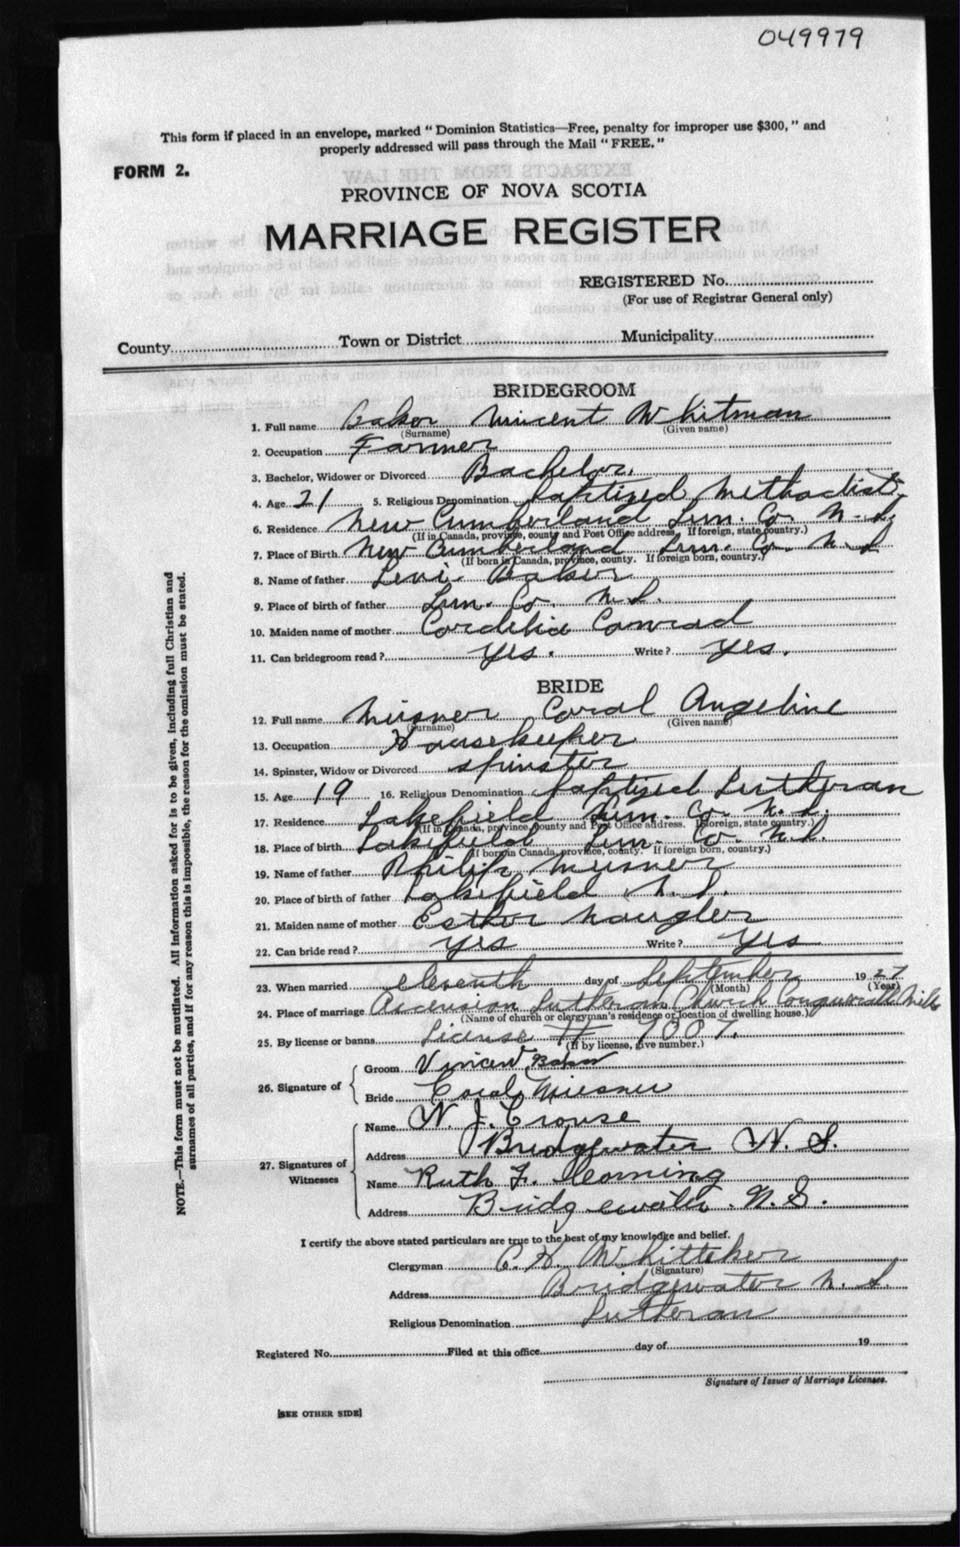 049979
This form if placed in an envelope, marked "Dominion Statistics—Free, penalty for improper use $300," and
properly addressed will pass through the Mail "FREE."
FORM 2.
EXTRACTS FROM THE LAW
PROVINCE OF NOVA SCOTIA
MARRIAGE REGISTER
REGISTERED No.
(For use of Registrar General only)
County Town or District Municipality
BRIDEGROOM
1. Full name Baker Vincent Whitman
(Surname) (Given name)
2. Occupation Farmer
3. Bachelor, Widower or Divorced Bachelor.
4. Age 21 5. Religious Denomination baptized Methodist
6. Residence New Cumberland Lun. Co. N.S.
(If in Canada, province, county and Post Office address. If foreign, state country.)
7. Place of Birth New Cumberland Lun. Co. N.S.
(If born in Canada, province, county. If foreign born, country.)
8. Name of father Levi Baker
9. Place of birth of father Lun. Co. N.S.
10. Maiden name of mother Cordelia Conrad
11. Can bridegroom read? Yes. Write? Yes.
BRIDE
12. Full name Meisner Coral Angeline
(Surname) (Given name)
13. Occupation Housekeeper
14. Spinster, Widow or Divorced Spinster
15. Age 19 16. Religious Denomination baptized Lutheran
17. Residence Lakefield Lun. Co. N.S.
(If in Canada, province, county and Post Office address. If foreign, state country.)
18. Place of birth Lakefield Lun. Co. N.S.
(If born in Canada, province, county. If foreign born, country.)
19. Name of father Philip Meisner
20. Place of birth of father Lakefield N.S.
21. Maiden name of mother Esther Naugler
22. Can bride read? Yes Write? Yes
23. When married eleventh day of September 1927
(Month) (Year)
24. Place of marriage Ascension Lutheran Church Conquerall Mills
(Name of church or clergyman's residence or location of dwelling house.)
25. By license or banns License # 7007.
(If by license, give number.)
26. Signature of Groom Vincent Baker
Bride Coral Miesner
27. Signatures of Witnesses Name W. J. Crouse
Address Bridgewater N. S.
Name Ruth F. Corning
Address Bridgewater. N. S.
I certify the above stated particulars are true to the best of my knowledge and belief.
Clergyman C. H. Whitteker
(Signature)
Address Bridgewater N. S.
Religious Denomination Lutheran
Registered No. Filed at this office day of 19
Signature of Issuer of Marriage Licenses.
[SEE OTHER SIDE]
NOTE.—This form must not be mutilated. All information asked for is to be given, including full Christian and
surnames of all parties, and if for any reason this is impossible, the reason for the omission must be stated.